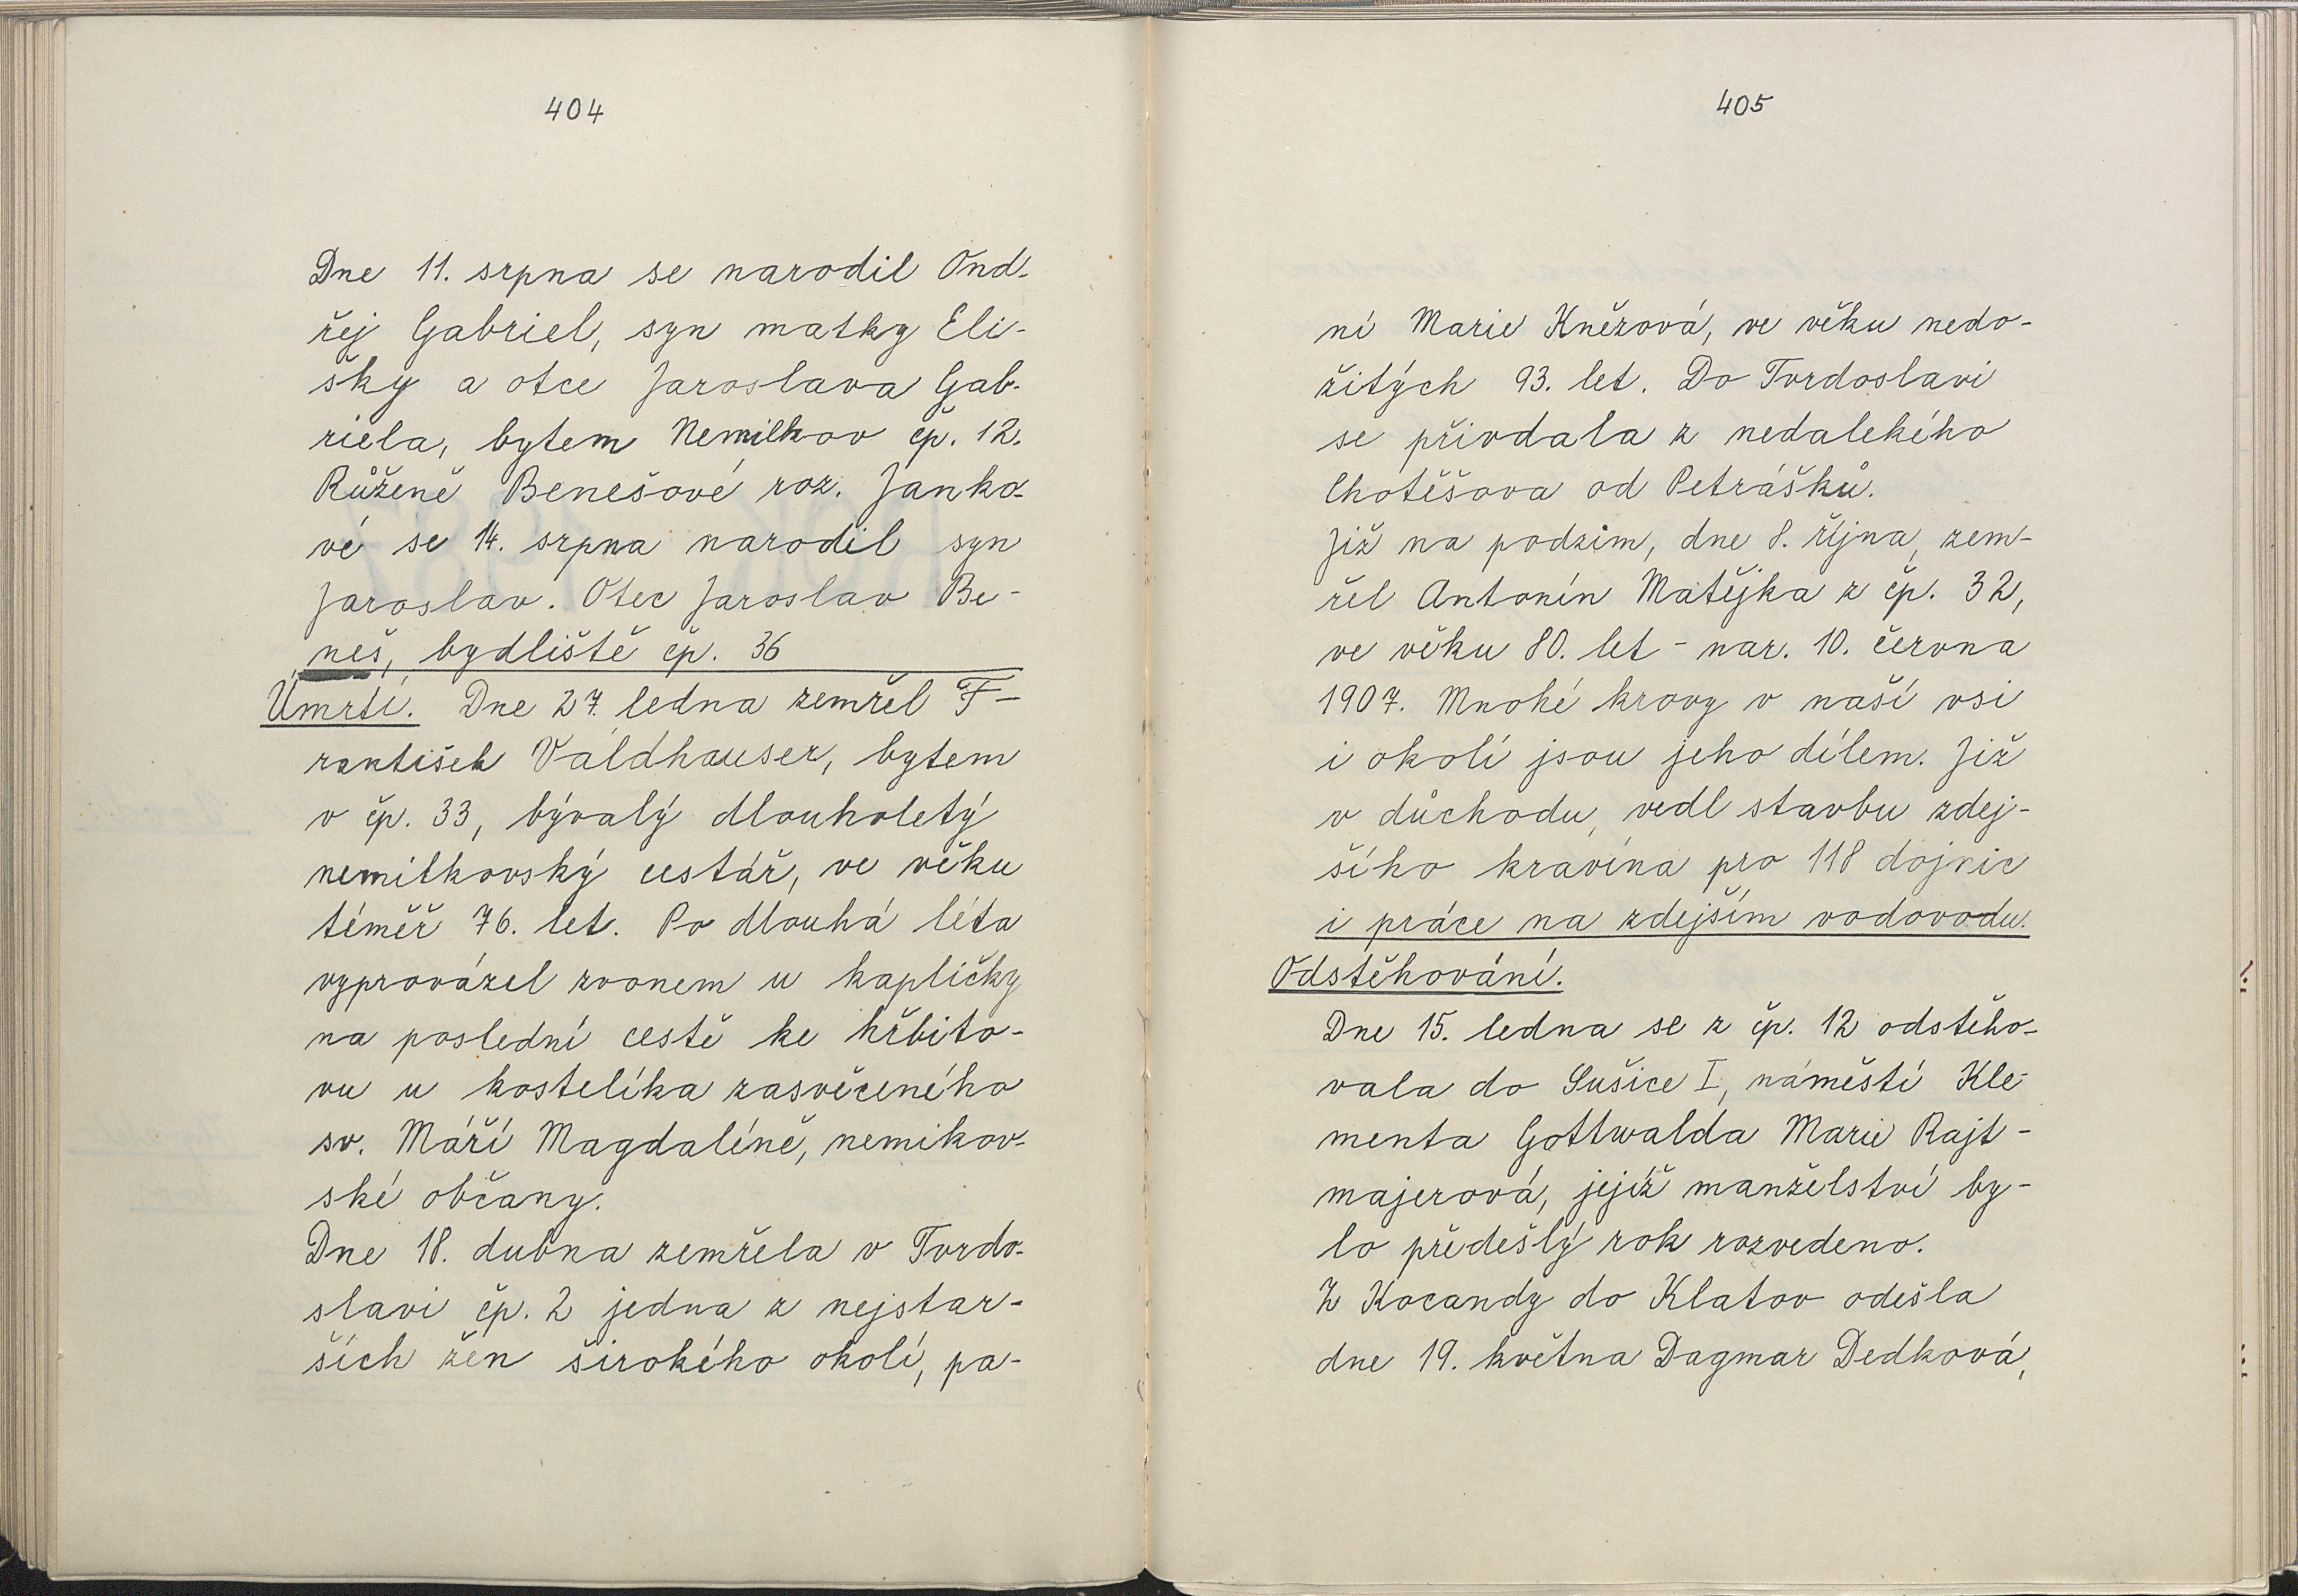 404
Dne 11. srpna se narodil Ond-
řej Gabriel, syn matky Eli-
šky a otce Jaroslava Gab-
riela, bytem Nemilkov čp. 12.
Růženě Benešové roz. Janko-
vé se 14. srpna narodil syn
Jaroslav. Otec Jaroslav Be-
neš, bydliště čp. 36
Úmrtí. Dne 27. ledna zemřel F-
rantišek Valdhauser, bytem
v čp. 33, bývalý dlouholetý
nemilkovský cestář, ve věku
téměř 76. let. Po dlouhá léta
vyprovázel zvonem u kapličky
na poslední cestě ke hřbito-
vu u kostelíka zasvěceného
sv. Máří Magdaléně, nemikov-
ské občany.
Dne 18. dubna zemřela v Tvrdo-
slavi čp. 2 jedna z nejstar-
ších žen širokého okolí, pa-
405
ní Marie Knězová, ve věku nedo-
žitých 93. let. Do Tvrdoslavi
se přivdala z nedalekého
Chotěšova od Petrášků.
Již na podzim, dne 8. října, zem-
řel Antonín Matějka z čp. 32,
ve věku 80. let - nar. 10. června
1907. Mnohé krovy v naší vsi
i okolí jsou jeho dílem. Již
v důchodu, vedl stavbu zdej-
šího kravína pro 118 dojnic
i práce na zdejším vodovodu.
Odstěhování.
Dne 15. ledna se z čp. 12 odstěho-
vala do Sušice I, náměstí Kle-
menta Gottwalda Marie Rajt-
majerová, jejíž manželství by-
lo předešlý rok rozvedeno.
Z Kocandy do Klatov odešla
dne 19. května Dagmar Dedková,